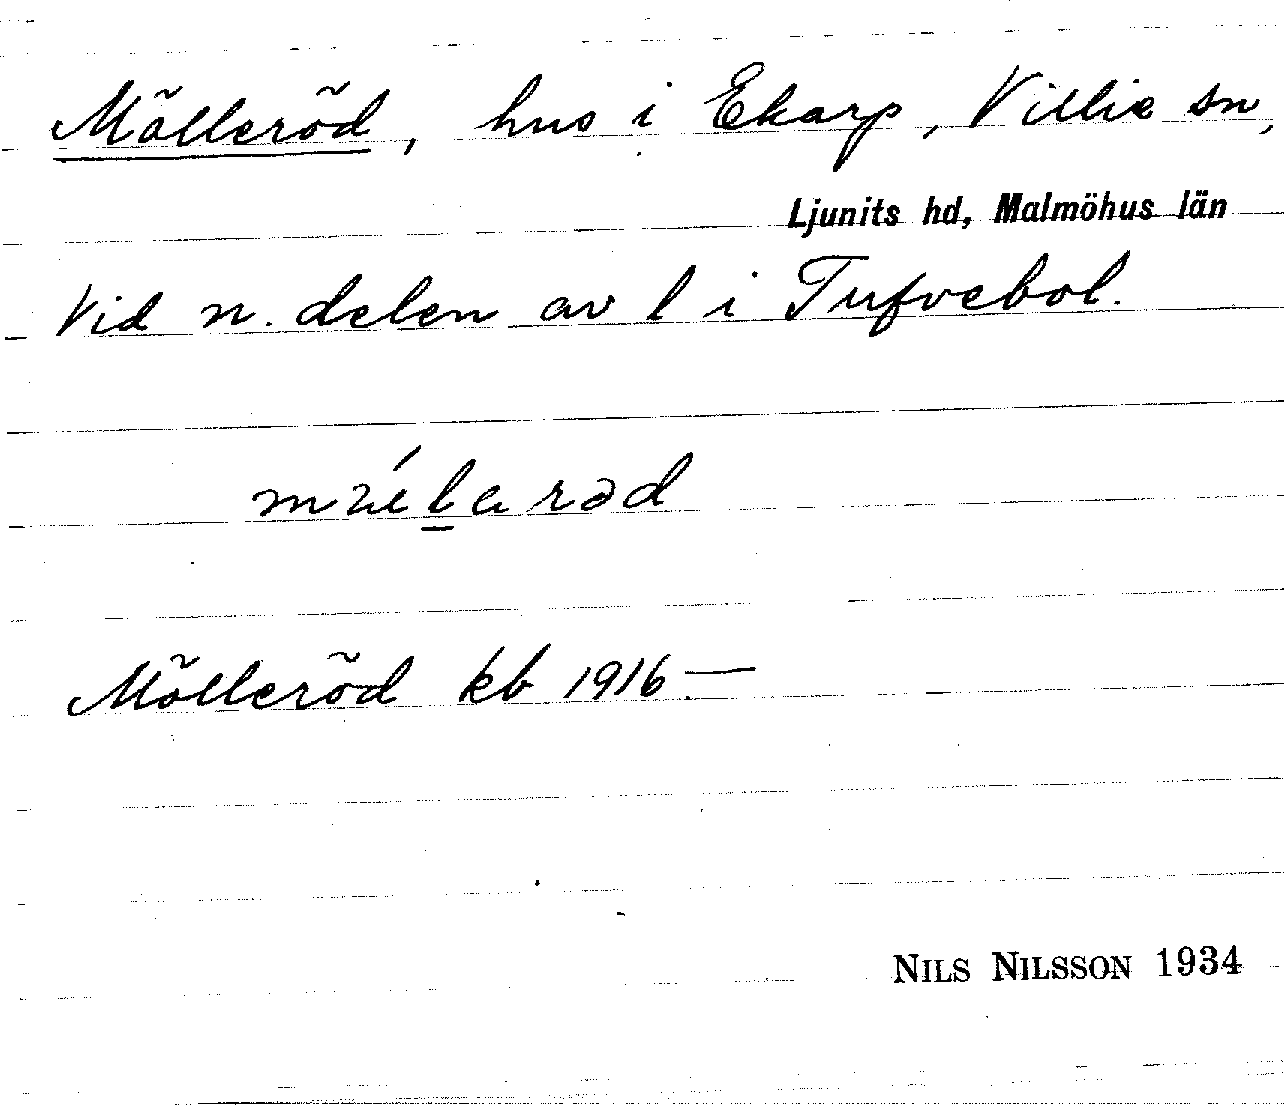 Mölleröd, hus i Ekarp, Villie sn,
Ljunits hd, Malmöhus län
Vid n. delen av l i Tufvebol.
Mölleröd kb 1916 —
NILS NILSSON 1934